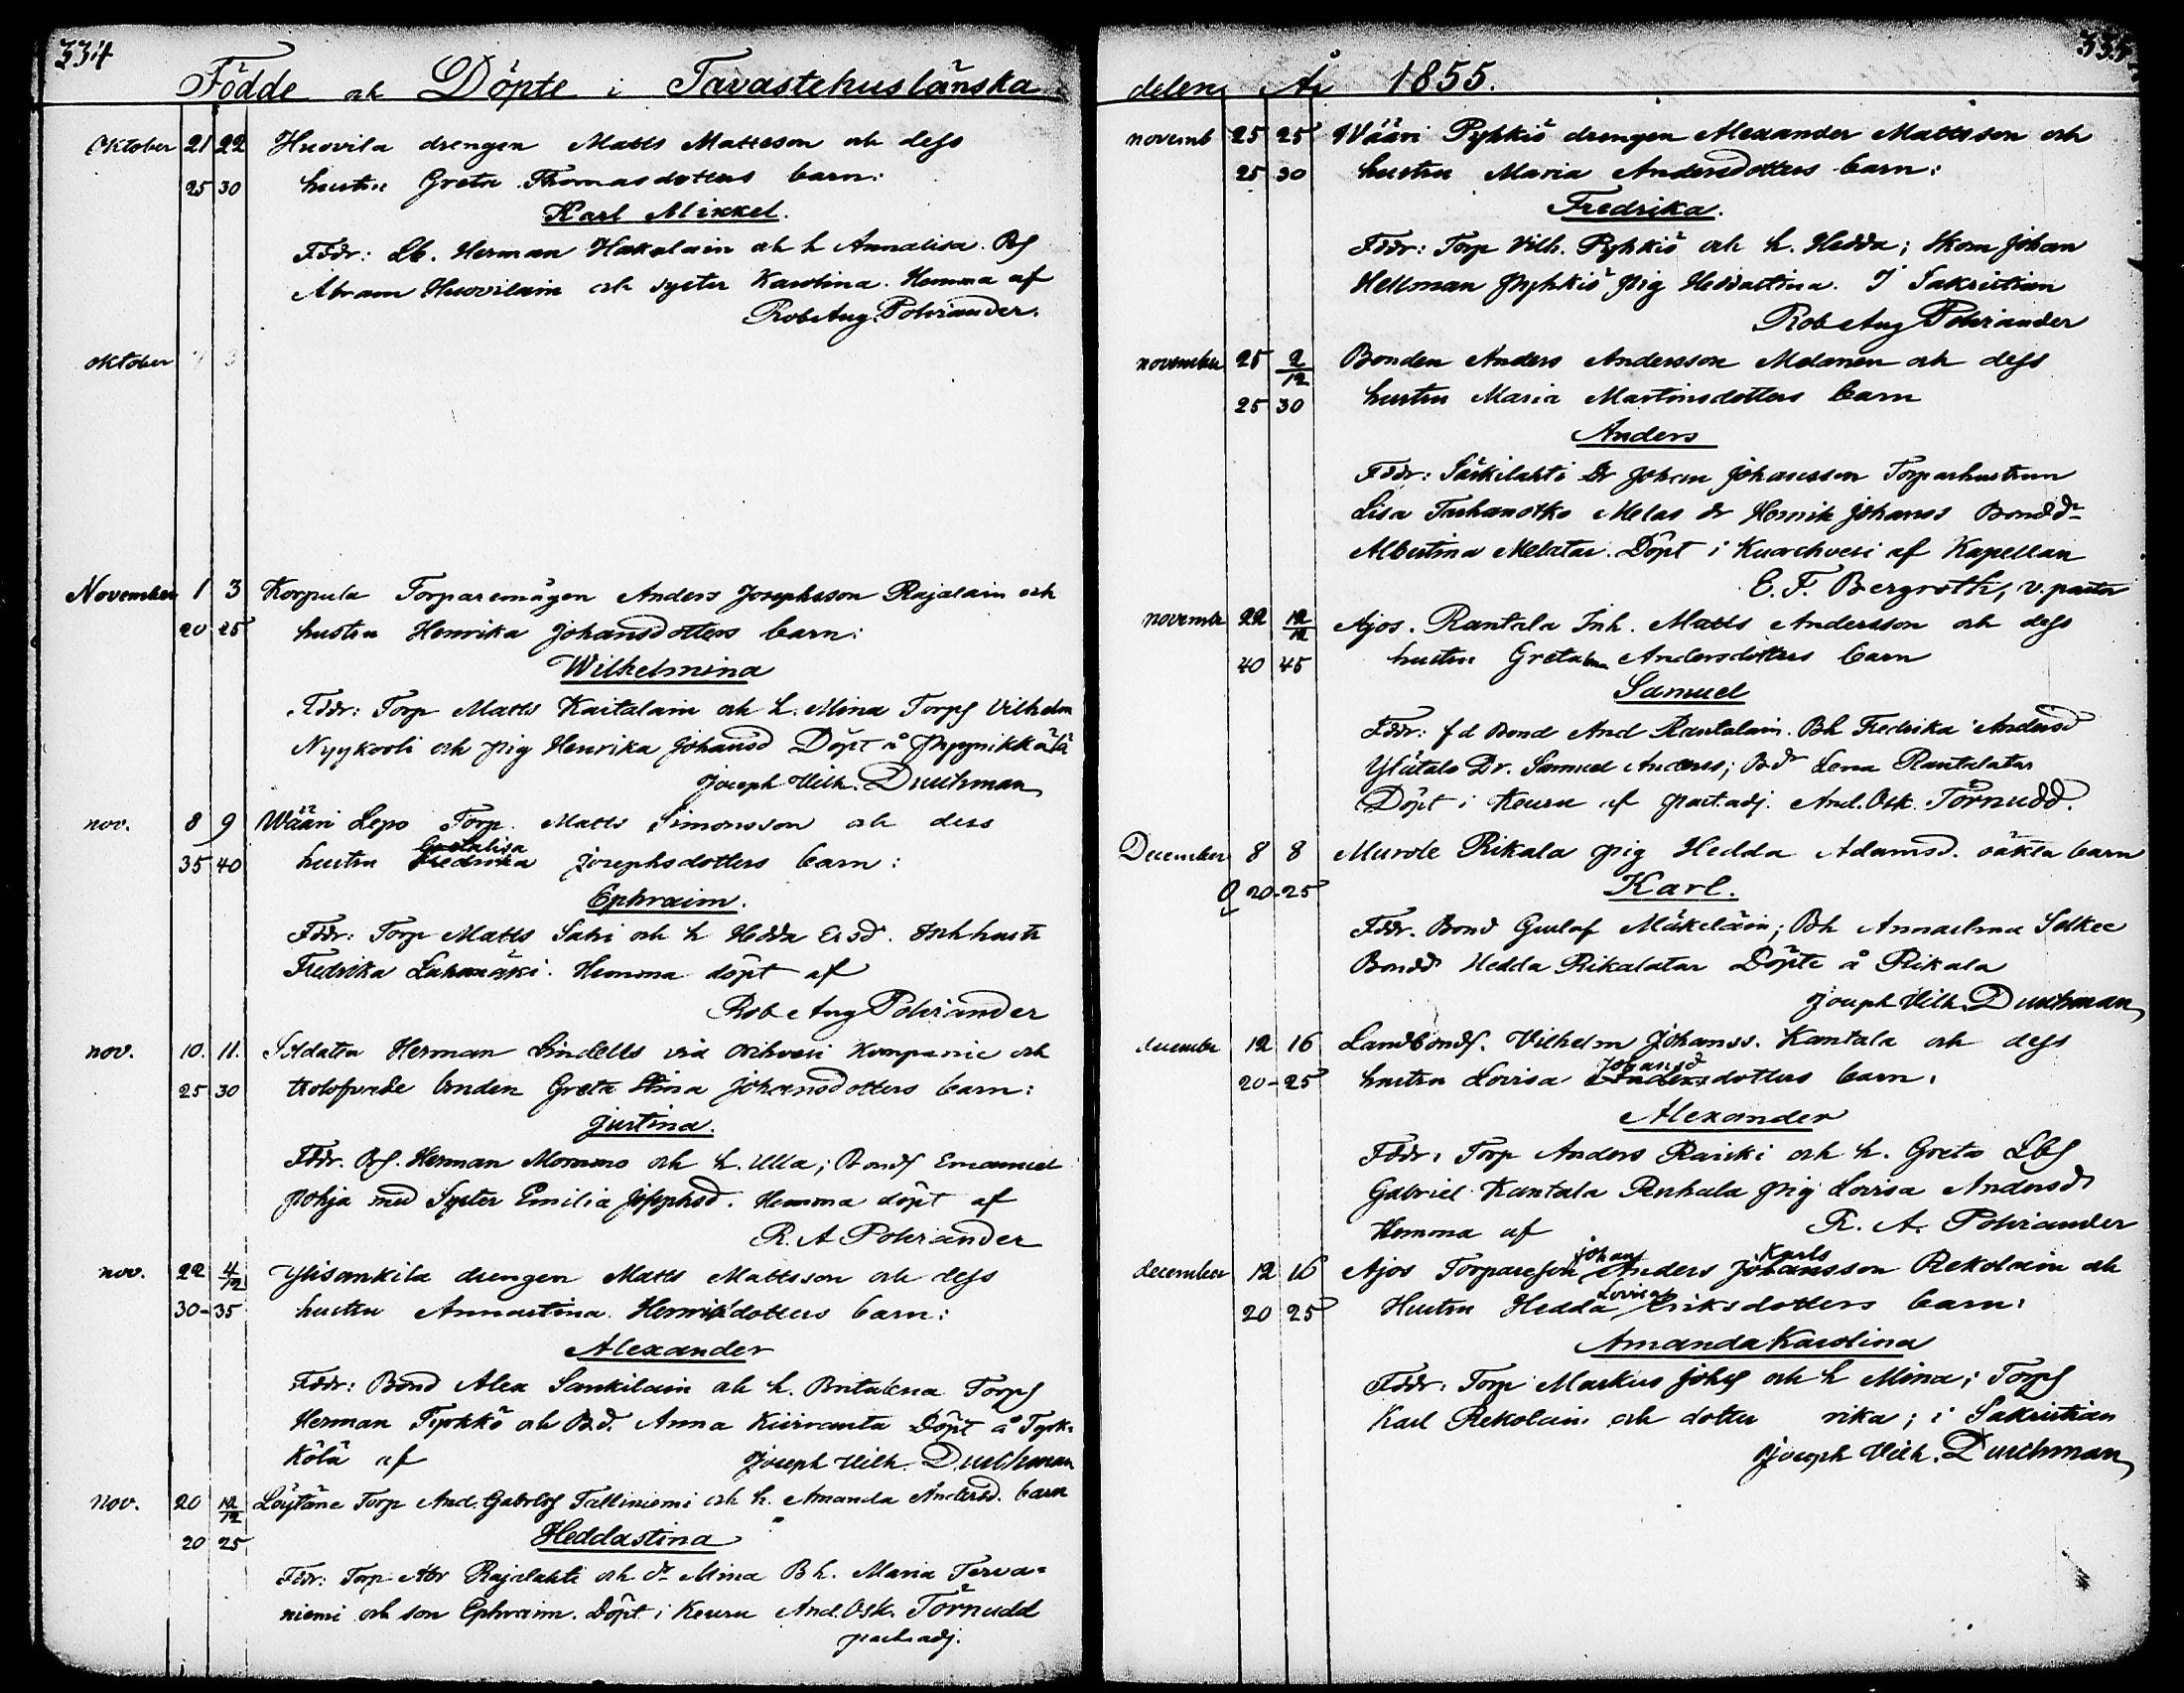 334
Födde och Döpte i Tavastehuslänska
Oktober 21 22 Huovila drengen Matts Mattsson och dess
25 30 hustru Greta Thomasdotters barn:
Karl Mikkel.
Fddr: Lb. Herman Hakalain och h Annalisa. Bs
Abram Huovilain och syster Karolina. Hemma af
Rob Aug. Polviander.
oktober
November 1 3 Korpula Torparemågen Anders Josephsson Rajalain och
20 25 hustru Henrika Johansdotters barn:
Wilhelmina
Fddr: Torp Matts Kaitalain och h. Mina Torps Vilhelm
Nyykooli och pig Henrika Johansd Döpt å Pynnikkälä
Joseph Vilh. Durchman
nov. 8 9 Wääri Lepo Torp. Matts Simonsson och dess
Gretalisa
35 40 hustru Fredrika Josephsdotters barn:
Ephraim.
Fddr: Torp Matts Salvi och h Hedda Ersd. Inhhustr
Fredrika Luhamäki. Hemma döpt af
Rob Aug Polviander
nov. 10. 11. Soldaten Herman Lindells vid Orihvesi Kompanie och
25 30 trolofvade Enden Greta Stina Johansdotters barn:
Justina.
Fddr. Bs. Herman Mommo och h. Ulla; Bonds Emanuel
Pohja med Syster Emilia Josephsd. Hemma döpt af
R. A Polviander
nov. 22 4/12 Ylisankila drengen Matts Mattsson och dess
30-35 hustru Annastina Henriksdotters barn:
Alexander
Fddr: Bond Alex Sankilain och h. Britalena Torps
Herman Tyrkkö och Bd. Anna Kiirvanta Döpt å Tyrk=
kölä af Joseph Vilh. Durchman
nov. 20 12/12 Löytäne Torp And. Gabrls Talliniemi och h. Amanda Andersd. barn
20 25 Heddastina
Fddr: Torp Abr Rajalahti och dr Mina Bh. Maria Terva=
niemi och son Ephraim. Döpt i Keuru And. Osk. Törnudd
past. adj.
335
delen År 1855.
novemb 25 25 Wääri Pyhkiö drengen Alexander Mattsson och
25 30 hustru Maria Andersdotters barn:
Fredrika.
Fddr: Torp Vilh. Pyhkiö och h. Hedda; Skom Johan
Hellman Pyhkiö pig Heddastina. I Sakristian
Rob Aug Polviander
november 25 2/12 Bonden Anders Andersson Melanen och dess
25 30 hustru Maria Martinsdotters barn
Anders
Fddr: Särkilahti Dr Johan Johansson Torparhustrun
Lisa Tarhanotko Melas dr Henrik Johanss Bondd
Albertina Melatar. Döpt i Kuorehvesi af Kapellan
E. F. Bergroth, v. pastor
november 22 12/12 Ajos. Rantala Inh. Matts Andersson och dess
40 45 hustru Gretalena Andersdotters barn
Samuel
Fddr: fd Bond And Rantalain. Bh Fredrika Andersd
Ylütalo Dr. Samuel Anderss; Bdr Lena Rantalatar
Döpt i Keuru af past. adj. And. Osk. Törnudd.
December 8 8 Murole Rikala pig Hedda Adamsd. oäkta barn
O 20-25 Karl.
Fddr. Bond Gustaf Mäkeläin; Bh Annastina Selkee
Bondd Hedda Rikalatar Döpte å Rikala
Joseph Vilh. Durchman
december 12 16 Landbonds. Vilhelm Johanss. Kantala och dess
Johansd
20-25 hustru Lovisa Andersdotters barn:
Alexander
Fddr: Torp Anders Raiski och h. Greta Lbs
Gabriel Kantala Penkala pig Lovisa Andersd
Hemma af R. A. Polviander
Johan Karls
december 12 16 Ajos Torpareson Anders Johansson Rekolain och
Lovisa
20 25 Hustru Hedda Eriksdotters barn:
Amanda Karolina
Fddr: Torp Markus Johs och h Mina; Torps
Karl Rekolain och dotter rika; i Sakristian
Joseph Vilh. Durchman